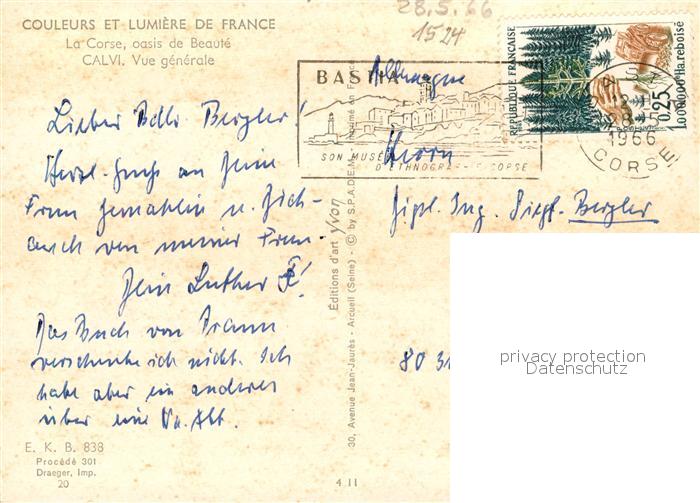 COULEURS ET LUMIÈRE DE FRANCE
La Corse, oasis de Beauté
CALVI. Vue générale
Lieber Bdbr. Bergler!
Herzl. Gruß an Deine
Frau Gemahlin u. Dich-
auch von meiner Frau-
Dein Luther
Das Buch von
verschenke ich nicht. Ich
habe aber ein anderes
über eine
E. K. B. 838
Procédé 301
Draeger, Imp.
20
Éditions d'art yvon
© by S.P.A.D.E.M.
Imprimé en France
30, Avenue Jean-Jaurès - Arcueil (Seine)
4 11
28.5.66
1524
BASTIA
SON MUSÉE
D'ETHNOGRAPHIE CORSE
RÉPUBLIQUE FRANÇAISE
0,25
1.000.000e Ha. reboisé
28-5
1966
CORSE
Allemagne
Herrn
Dipl. Ing. Siegf. Bergler
80 31
privacy protection
Datenschutz